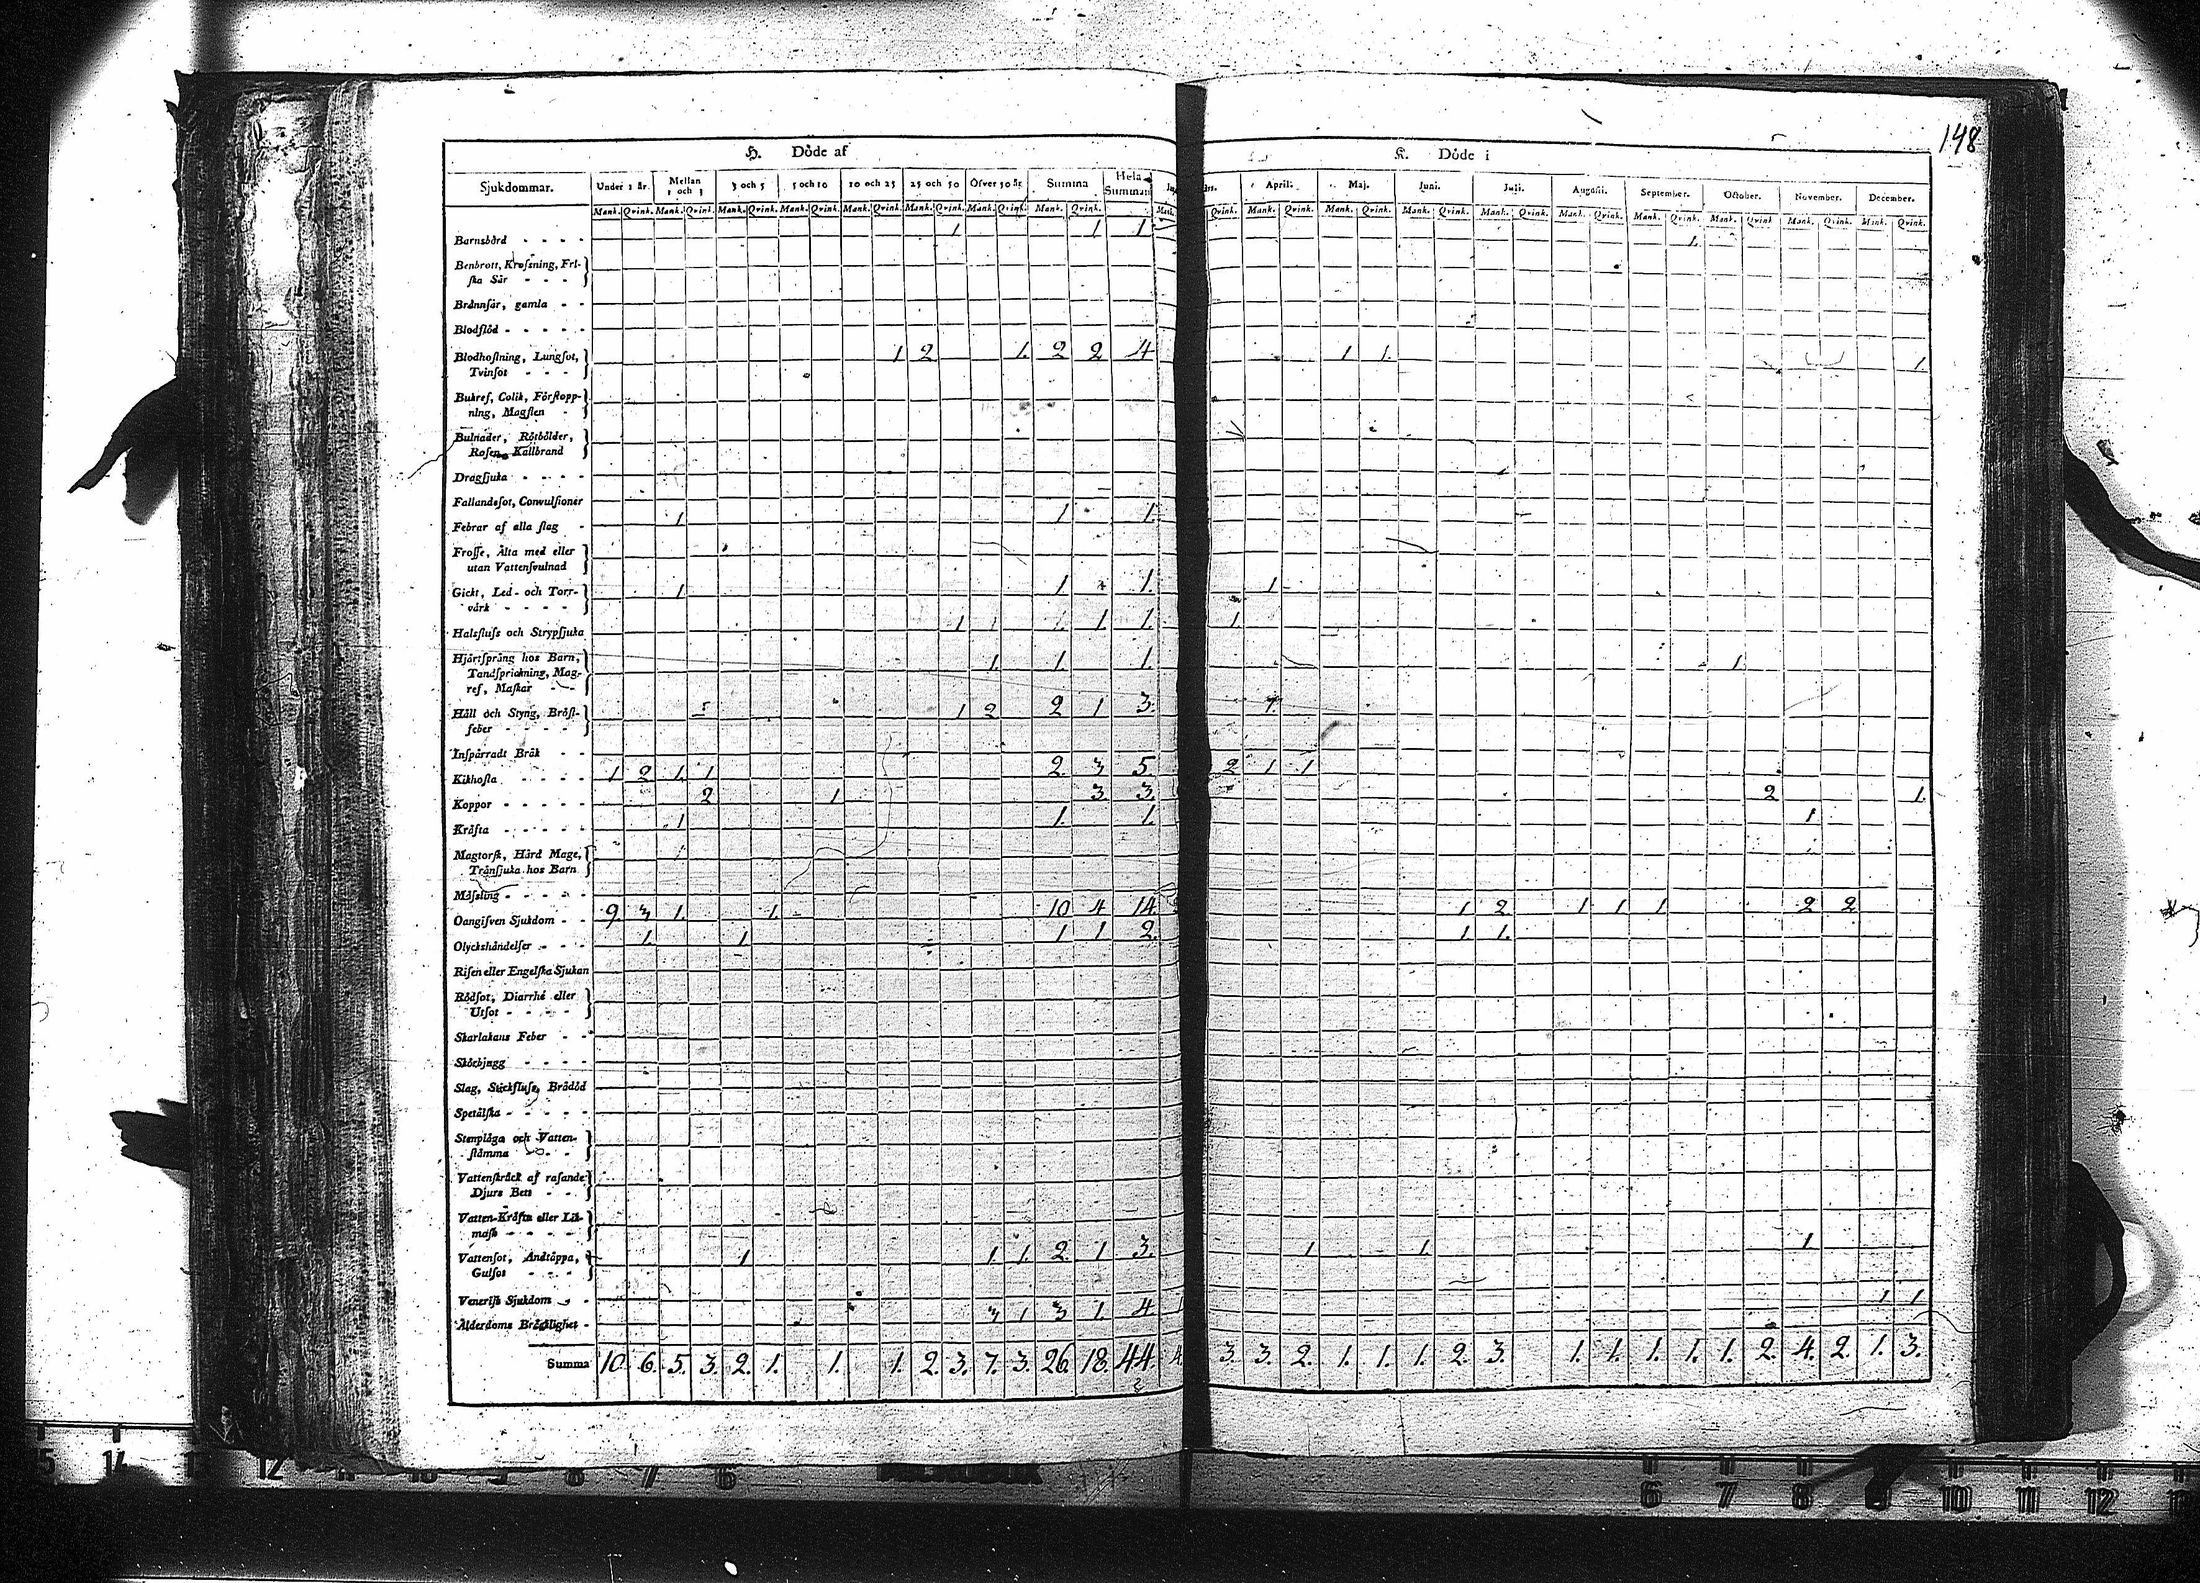 148
H. Döde af
K. Döde i
Sjukdommar. Under 1 år. Mellan 1 och 3 3 och 5 5 och 10 10 och 25 25 och 50 Öfver 50 år Summa Hela Summan
April. Maj. Juni. Juli. Augusti. September. October. November. December.
Mank. Qvink. Mank. Qvink. Mank. Qvink. Mank. Qvink. Mank. Qvink. Mank. Qvink. Mank. Qvink. Mank. Qvink. Mank.
Qvink. Mank. Qvink. Mank. Qvink. Mank. Qvink. Mank. Qvink. Mank. Qvink. Mank. Qvink. Mank. Qvink. Mank. Qvink. Mank. Qvink.
Barnsbörd - - - - 1 1 1 1.
Benbrott, Krofsning, Fri-
ska Sår - - -
Brännsår, gamla - -
Blodflöd - - - - -
Blodhostning, Lungsot, 1 2 1. 2 2 4 1 1. 1
Tvinsot - - -
Bukref, Colik, Förstopp-
ning, Magsten -
Bulnader, Rötbölder,
Rosen, Kallbrand
Dragsjuka - - - -
Fallandesot, Convulsioner
Febrar af alla slag - 1 1 1
Frosse, Älta med eller
utan Vattensvulnad
Gickt, Led- och Torr- 1 1 1. 1
värk - - - -
Halsfluss och Strypsjuka 1 1. 1. 1
Hjärtsprång hos Barn, 1. 1 1. 1
Tandsprickning, Mag-
ref, Maskar - -
Håll och Styng, Bröst- 1 2 2 1 3
feber - - - -
Inspärradt Bråk - -
Kikhosta - - - - 1 2 1. 1 2 3 5 2 1 1
Koppor - - - - - 2 1 3 3 2 1.
Kräfta - - - - - 1 1. 1. 1
Magtorsk, Hård Mage,
Tränsjuka hos Barn
Mässling - - - - -
Oangifven Sjukdom - - 9 3 1. 1. 10 4 14 1 2 1 1 1 2 2
Olyckshändelser - - - 1. 1 1 1 2. 1 1.
Risen eller Engelska Sjukan
Rödsot, Diarrhé eller
Utsot - - - -
Skarlakans Feber - -
Skörbjugg - - - -
Slag, Stickfluss, Brådöd
Spetälska - - - - -
Stenplåga och Vatten-
stämma - - -
Vattenskräck af rasande
Djurs Bett - -
Vatten-Kräfta eller Lik-
mask - - - -
Vattensot, Andtäppa, 1 1 1. 2 1 3. 1 1 1
Gulsot - - -
Venerisk Sjukdom - -
Ålderdoms Bräcklighet - 3 1 3 1. 4 1 1
Summa 10. 6. 5. 3. 2. 1. 1. 1. 2. 3. 7. 3. 26 18. 44. 4 3. 3. 2. 1. 1. 1. 2. 3. 1. 1. 1. 1. 1. 2. 4. 2. 1. 3.
15 14 13 12 8 7 6 6 7 8 9 10 11 12